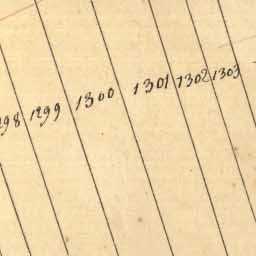 1299 1300 1301 1302 1303